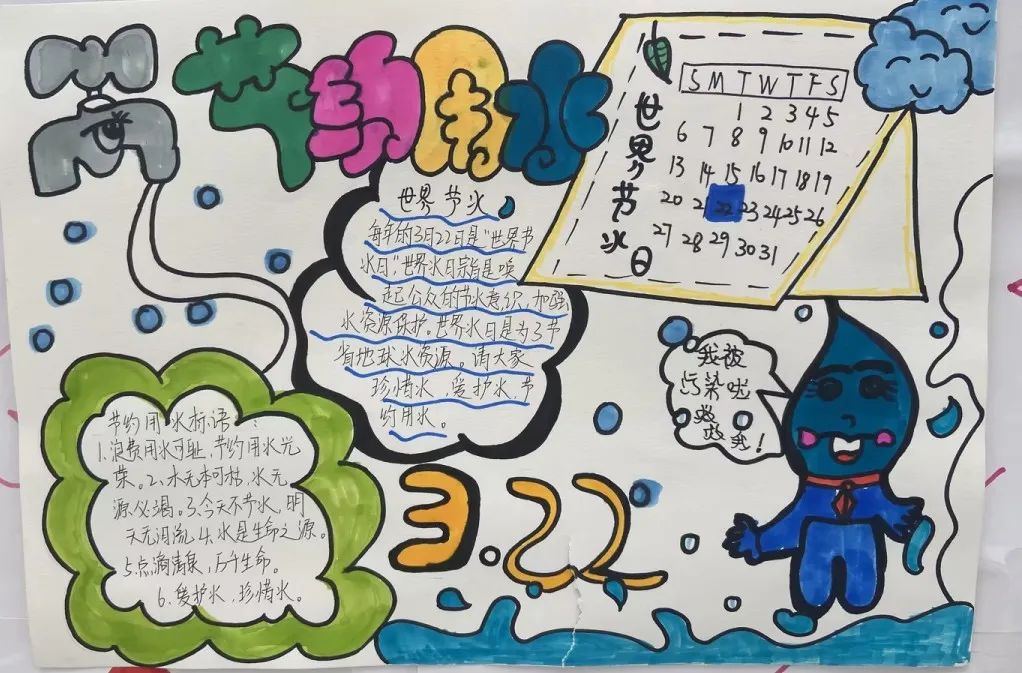 节约用水
世界节水
每年的3月22日是"世界节
水日",世界水日宗旨是唤
起公众的节水意识,加强
水资源保护。世界水日是为了节
省地球水资源。请大家
珍惜水,爱护水,节
约用水。
世界节水日
S M T W T F S
1 2 3 4 5
6 7 8 9 10 11 12
13 14 15 16 17 18 19
20 21 22 23 24 25 26
27 28 29 30 31
我被
污染啦
救
救我!
节约用水标语:
1.浪费用水可耻,节约用水光
荣。2、水无本可枯,水无
源必竭。3、今天不节水,明
天无泪流 4、水是生命之源。
5.点滴清泉,后千生命。
6、爱护水,珍惜水。
3.22